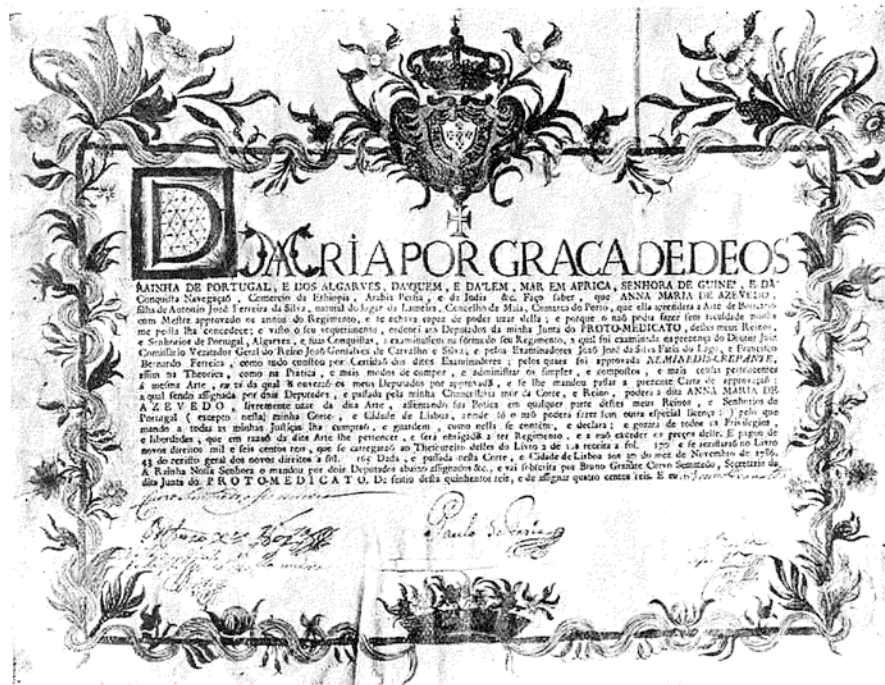 D MARIA POR GRAÇA DE DEOS
RAINHA DE PORTUGAL, E DOS ALGARVES, DA'QUEM, E DA'LEM, MAR EM AFRICA, SENHORA DE GUINE', E DA'
Conquista Navegaçaõ, Comercio da Ethiopia, Arabia Persia, e da India &c. Faço saber, que ANNA MARIA DE AZEVEDO,
filha de Antonio José Ferreira da Silva, natural do lugar da Lameira, Concelho de Maia, Comarca do Porto, que ella aprendera a Arte de Boticario
com Mestre approvado os annos do Regimento, e se achava capaz de poder uzar della; e porque o naõ podia fazer sem faculdade minha
me pedia lha concedece; e visto o seu requerimento, ordenei aos Deputados da minha Junta do PROTO-MEDICATO, destes meus Reinos,
e Senhorios de Portugal, Algarves, e suas Conquistas, a examinassem na fórma do seu Regimento, a qual foi examinada na presença do Doutor Juiz
Comissario Vezitador Geral do Reino Joaõ Gonsalves de Carvalho e Silva; e pelos Examinadores José José da Silva Faria do Lago, e Francisco
Bernardo Ferreira, como tudo constou por Certidaõ dos ditos Examinadores; pelos quaes foi approvada NEMINE DISCREPANTE,
assim na Theorica, como na Pratica, e mais modos de compor, e administrar os simples, e compostos, e mais cousas pertencentes
á mesma Arte, em fé da qual a ouveraõ os meus Deputados por approvada, e se lhe mandou passar a prezente Carta de approvaçaõ;
a qual sendo assignada por dois Deputados, e passada pela minha Chancellaria mór da Corte, e Reino, poderá a dita ANNA MARIA DE
AZEVEDO, livremente uzar da dita Arte, assentando sua Botica em qualquer parte destes meus Reinos, e Senhorios de
Portugal (excepto nesta minha Corte, e Cidade de Lisboa, aonde só o naõ poderá fazer sem outra especial licença;) pelo que
mando a todas as minhas Justiças lha cumpraõ, e guardem, como nella se contém, e declara; e gozará de todos os Privilegios
e liberdades, que em razaõ da dita Arte lhe pertencer, e será obrigada a ter Regimento, e a naõ exceder os preços delle. E pagou de
novos direitos mil e seis centos reis, que se carregaraõ ao Thezoureiro delles do Livro 2 de sua receita a fol. 170 e se rezistaraõ no Livro
43 do rezisto geral dos novos direitos a fol. 165 Dada, e passada nesta Corte, e Cidade de Lisboa aos 27 do mez de Novembro de 1786.
A Rainha Nossa Senhora o mandou por dois Deputados abaixo assignados &c., e vai sobscrita por Bruno Granate Curvo Semmedo, Secretario da
dita Junta do PROTO-MEDICATO. De feitio desta quinhentos reis, e de assignar quatro centos reis. E eu
Paulo de